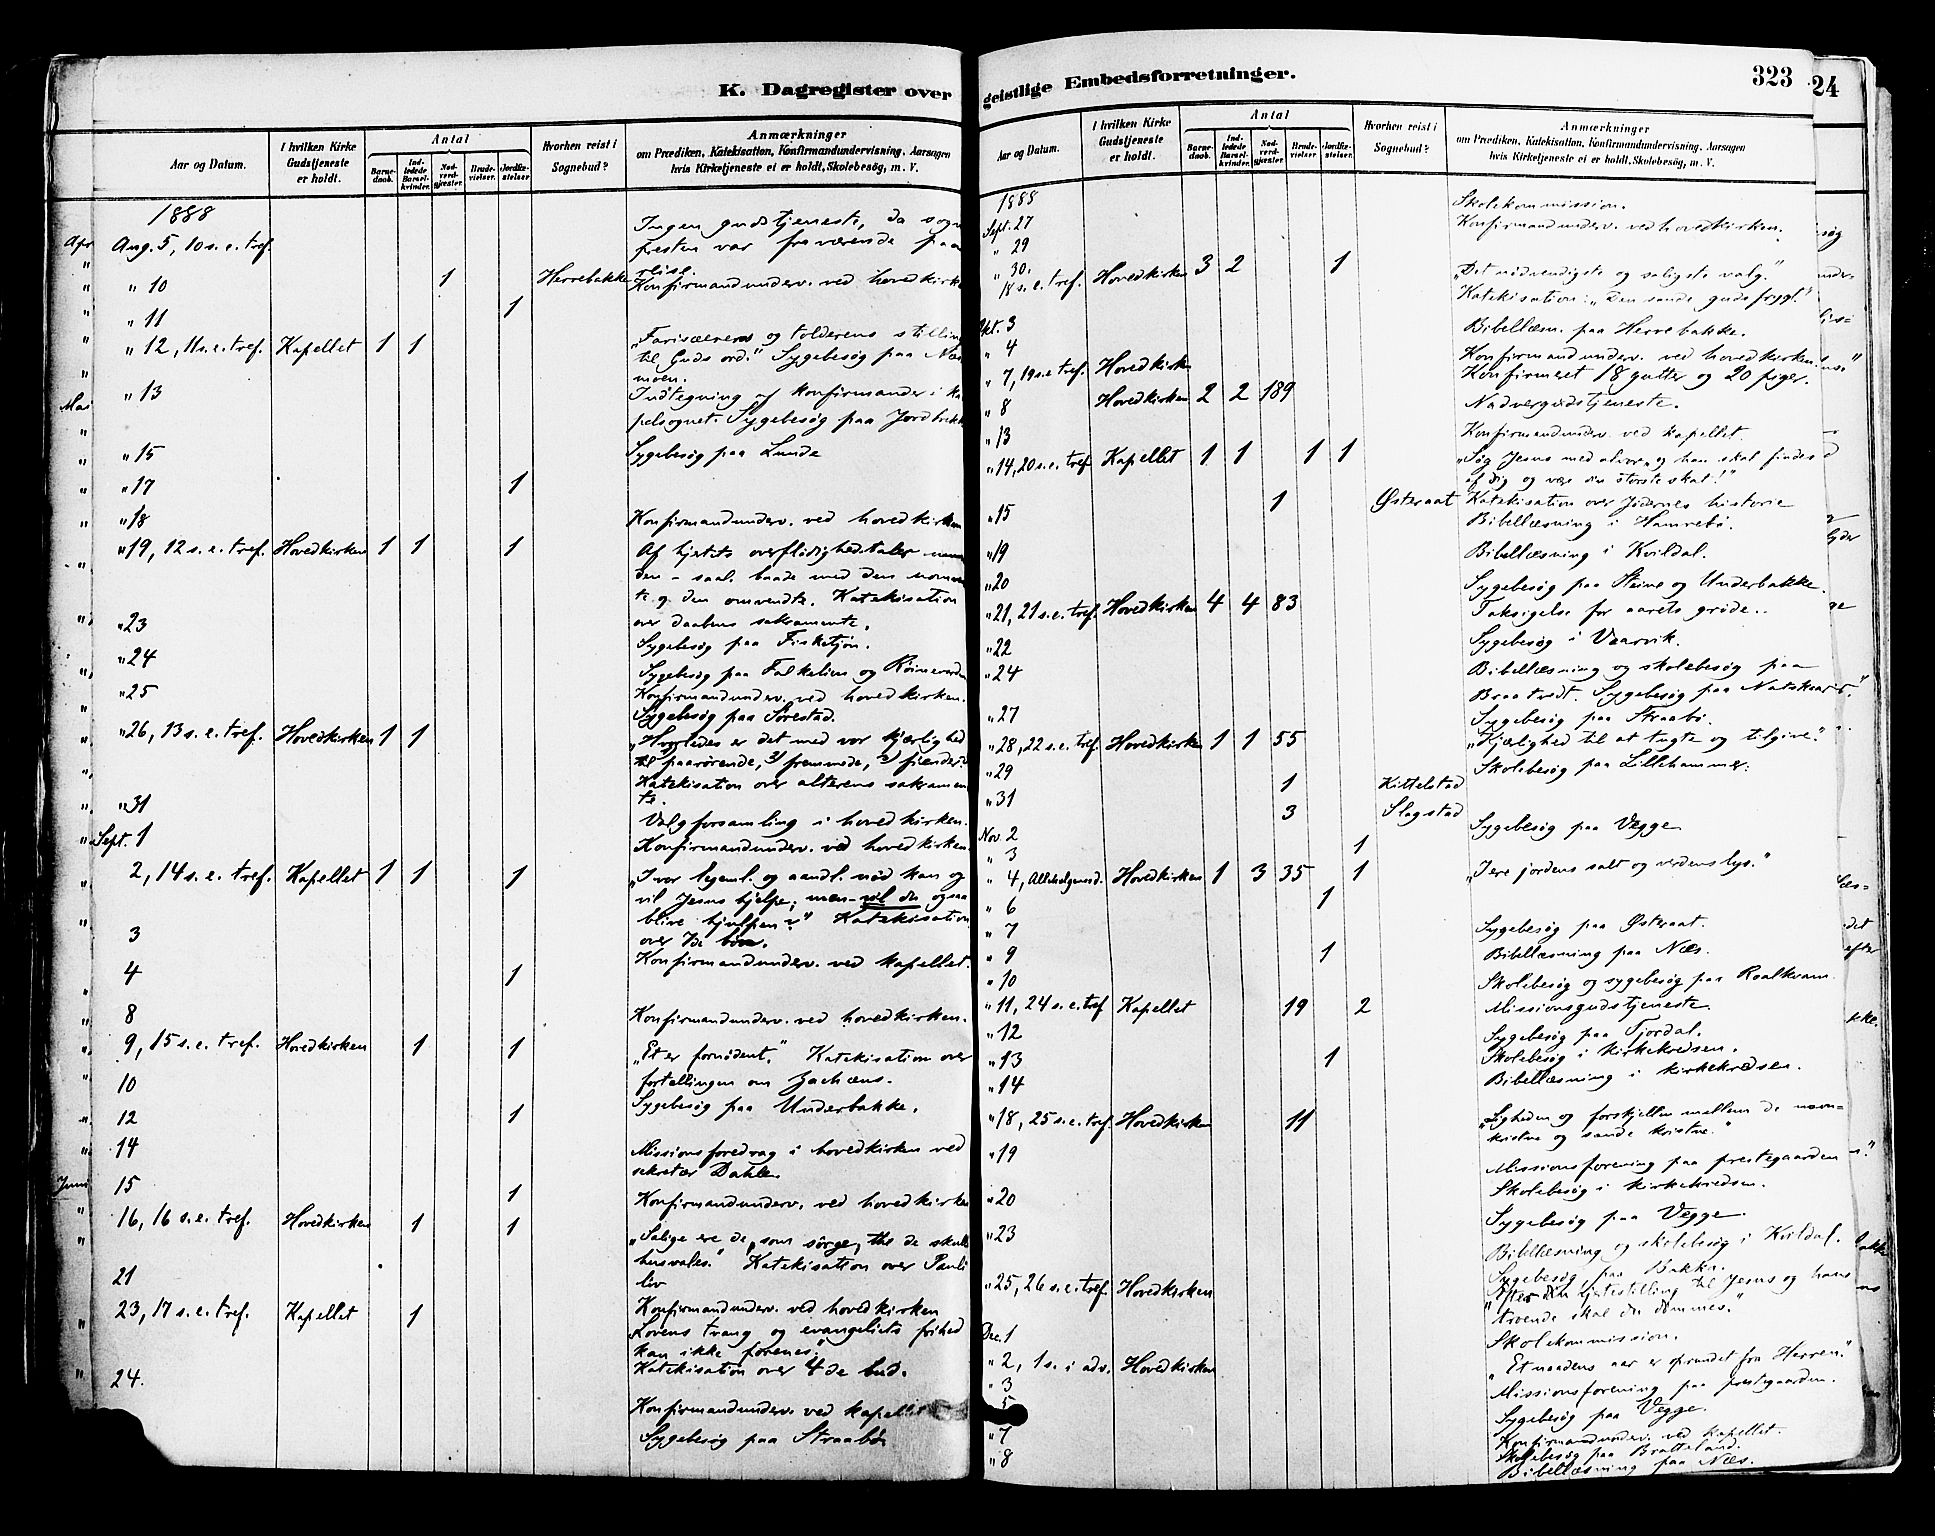 K. Dagregister over
Aar og Datum. I hvilken Kirke Gudstjeneste er holdt. Antal Barnedaab. Indledede Barselkvinder. Nadverdgjester. Brudevielser. Jordfæstelser. Hvorhen reist i Sognebud? Anmærkninger om Prædiken, Katekisation, Konfirmandundervisning, Aarsagen hvis Kirketjeneste ei er holdt, Skolebesög, m. V.
1888
Aug. 5, 10 s. e. tref. Ingen gudstjeneste, da sogne
presten var fraværende paa
reise.
" 10 1 Herrebakke Konfirmandunderv. ved hovedkirk
" 11 1
" 12, 11 s. e. tref. Kapellet 1 1 "Farisæerens og tolderens stilling
til Guds ord." Sygebesög paa
moen.
" 13 Indtegning af konfirmander i ka
pelsognet. Sygebesög paa Jordbrekk
" 15 Sygebesög paa Lunde
" 17 1
" 18 Konfirmandunderv. ved hovedkirken
" 19, 12 s. e. tref. Hovedkirken 1 1 1 Af hjertets overflödighed taler
den - saal. baade med den
og den omvendte. Katekisation
over daabens sakramente.
" 23 Sygebesög paa Fisketjön.
" 24 Sygebesög paa Falkelien og
" 25 Konfirmandunderv. ved hovedkirken.
Sygebesög paa Sörestad.
" 26, 13 s. e. tref. Hovedkirken 1 1 "Hvorledes er det med vor kjærlighed
til paarörende, fremmede, fiender?
Katekisation over alterens sakramen
te.
" 31 Valgforsamling i hovedkirken.
Sept. 1 Konfirmandunderv. ved hovedkirken.
2, 14 s. e. tref. Kapellet 1 1 1 "I vor legeml. og aandl. nöd kan og
vil Jesus hjelpe; men - vil du ogsaa
blive hjulpen?" Katekisation
over 7de bön.
3 Konfirmandunderv. ved kapellet.
4 1
8 Konfirmandunderv. ved hovedkirken.
9, 15 s. e. tref. Hovedkirken 1 1 "Et er fornödent." Katekisation over
fortellingen om Zachæus.
10 Sygebesög paa Underbakke.
12 1
14 Missionsforedrag i hovedkirken ved
sekretær Dahle.
15 1 Konfirmandunderv. ved hovedkirken
16, 16 s. e. tref. Hovedkirken 1 1 "Salige ere de, som sörge, thi de skulle
husvales." Katekisation over Pauli
liv
21 Konfirmandunderv. ved hovedkirken
23, 17 s. e. tref. Kapellet 1 Lovens tvang og evangeliets frihed
kan ikke forenes.
Katekisation over 4de bud.
24. Konfirmandunderv. ved kapellet
Sygebesög paa Straabö
geistlige Embedsforretninger. 323
24
Aar og Datum. I hvilken Kirke Gudstjeneste er holdt. Antal Barnedaab. Indledede Barselkvinder. Nadverdgjester. Brudevielser. Jordfæstelser. Hvorhen reist i Sognebud? Anmærkninger om Prædiken, Katekisation, Konfirmandundervisning, Aarsagen hvis Kirketjeneste ei er holdt, Skolebesög, m. V.
1888
Sept. 27 Skolekommission.
" 29 Konfirmandunderv. ved hovedkirken.
" 30. 18 s. e. tref. Hovedkirken 3 2 1 "Det nödvendigste og saligste valg."
Katekisation: "Den sande gudsfrygt."
Okt. 3 Bibellæsn. paa Herrebakke.
" 4 Konfirmandunderv. ved hovedkirken.
" 7, 19 s. e. tref. Hovedkirken Konfirmeret 18 gutter og 20 piger.
" 8 Hovedkirken 2 2 189 Nadvergudstjeneste.
" 13 Konfirmandunderv. ved kapellet.
" 14, 20 s. e. tref. Kapellet 1 1 1 1 "Sög Jesus med alvor, og han skal findes
af dig og være din störste skat!"
Katekisation over Jödernes historie
" 15 1 Østeraat Bibellæsning i Hamrebö.
" 19 Bibellæsning i Kvildal.
" 20 Sygebesög paa Steine og Underbakke.
" 21, 21 s. e. tref. Hovedkirken 4 4 83 Taksigelse for aarets gröde.
" 22 Sygebesög i Vaarvik.
" 24 Bibellæsning og skolebesög paa
Braatvedt. Sygebesög paa
" 27 Sygebesög paa Straabö.
" 28, 22 s. e. tref. Hovedkirken 1 1 55 "Kjærlighed til at tugte og tilgive."
" 29 1 Kittelstad Skolebesög paa Lillehammer.
" 31 3 Slagstad
Nov. 2 Sygebesög paa Vegge
" 3 1
" 4, Allehelgensd. Hovedkirken 1 3 35 1 "I ere jordens salt og verdens lys."
" 6 1
" 7 Sygebesög paa Østeraat.
" 9 1 Bibellæsning paa Næs.
" 10 Skolebesög og sygebesög paa Roalkvam.
" 11, 24 s. e. tref. Kapellet 19 2 Missionsgudstjeneste.
" 12 Sygebesög paa Fjordal.
" 13 1 Skolebesög i kirkekredsen.
" 14 Bibellæsning i kirkekredsen.
" 18, 25 s. e. tref. Hovedkirken 11 "Ligheden og forskjellen mellem de navn-
kristne og sande kristne."
" 19 Missionsforening paa prestegaarden
" 20 Skolebesög i kirkekredsen.
Sygebesög paa Vegge.
" 23 Bibellæsning og skolebesög i Kvildal.
Sygebesög paa Bakka.
" 25, 26 s. e. tref. Hovedkirken "Efter din hjertestilling til Jesus og hans
troende skal du dömmes."
Dec. 1 Skolekommission.
" 2, 1 s. i adv. Hovedkirken "Et naadens aar er oprundet fra Herren."
" 3 Missionsforening paa prestegaarden.
5 Sygebesög paa Vegge.
" 7 Konfirmandunderv. ved kapellet.
Skolebesög paa Bratteland.
" 8 Bibellæsning paa Næs.